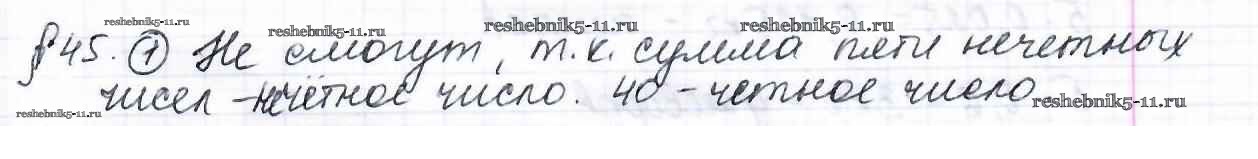 reshebnik5-11.ru
reshebnik5-11.ru reshebnik5-11.ru
§45. ① Не смогут, т.к. сумма пяти нечетных
чисел – нечётное число. 40 – четное число.
reshebnik5-11.ru
reshebnik5-11.ru